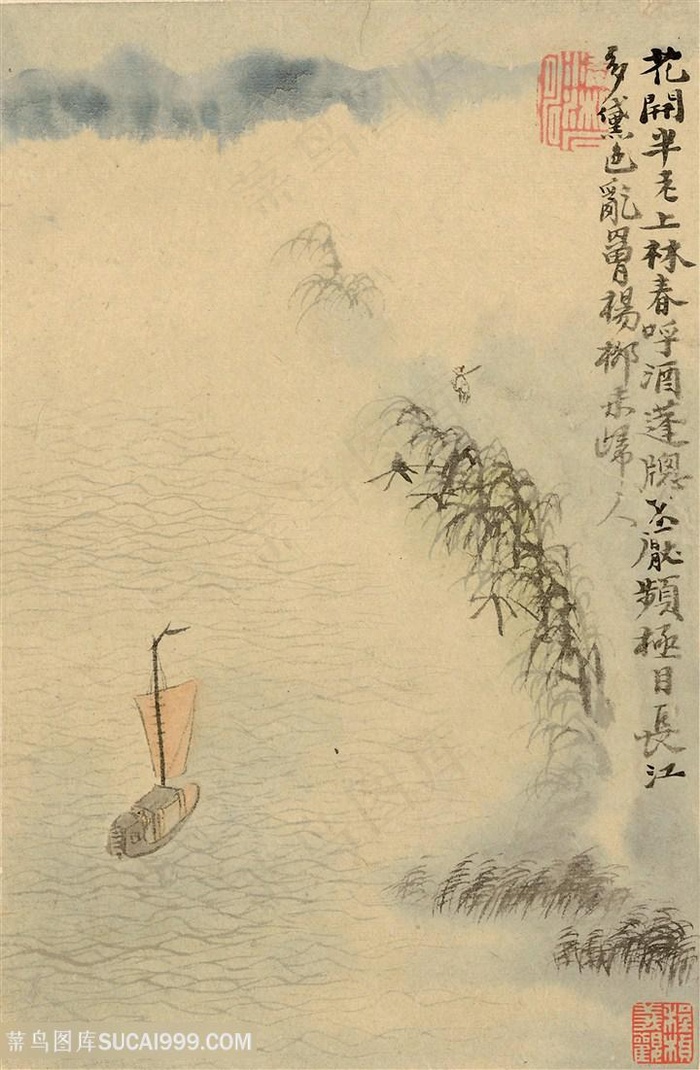 花開半老上林春呼酒蓬牕不厭頻極目長江
多黛色亂罥楊柳未歸人
程楨
義觀
菜鸟图库SUCAI999.COM